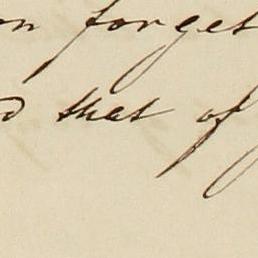 on forget
d that of